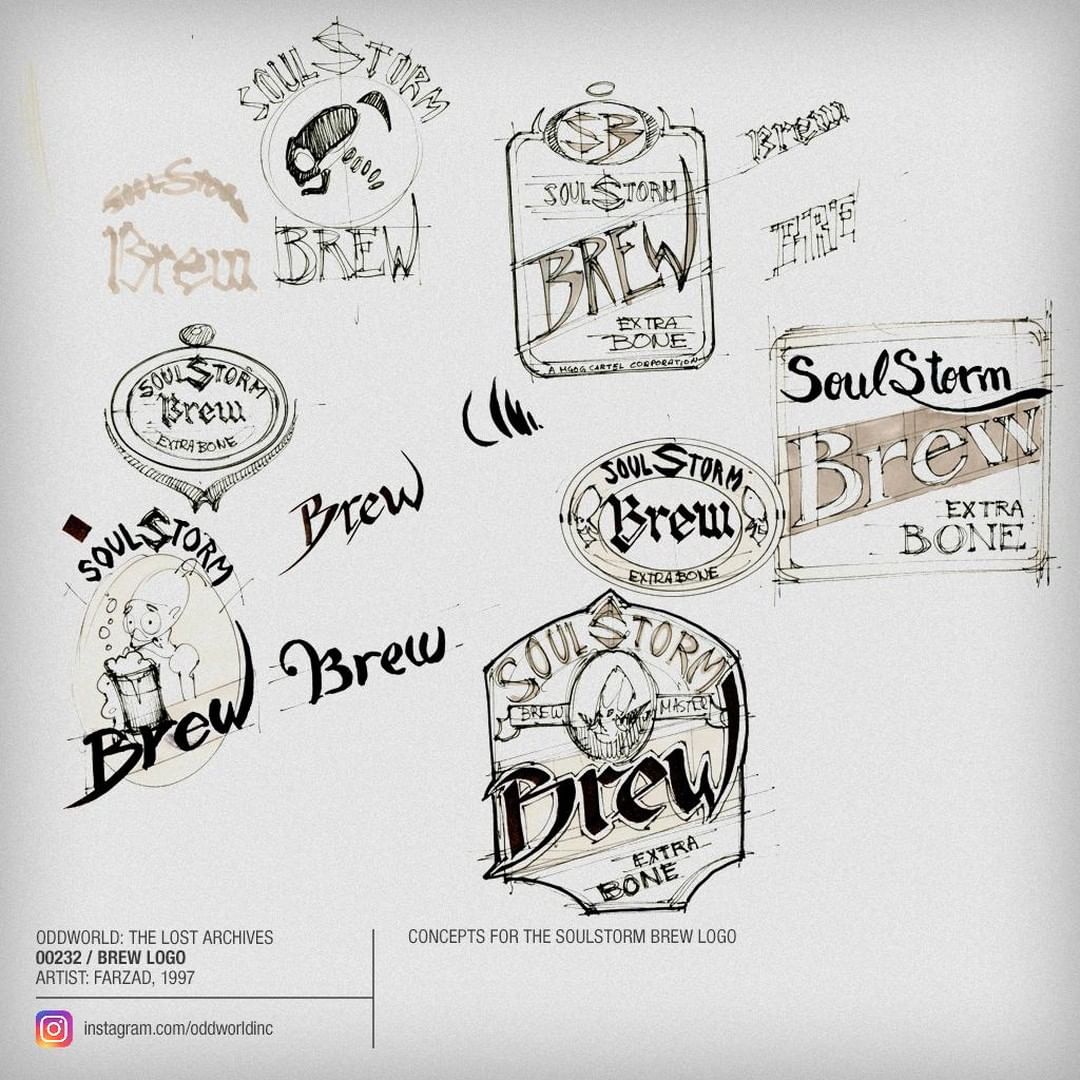 SOULSTORM
BREW
SoulStorm
Brew
SB
SOULSTORM
BREW
EXTRA
BONE
A MGOG CARTEL CORPORATION
Brew
SOULSTORM
Brew
EXTRA BONE
SoulStorm
Brew
EXTRA
BONE
Brew
SOULSTORM
Brew
EXTRA BONE
SOULSTORM
Brew
Brew
SOULSTORM
BREW MASTER
Brew
EXTRA
BONE
ODDWORLD: THE LOST ARCHIVES
00232 / BREW LOGO
ARTIST: FARZAD, 1997
instagram.com/oddworldinc
CONCEPTS FOR THE SOULSTORM BREW LOGO